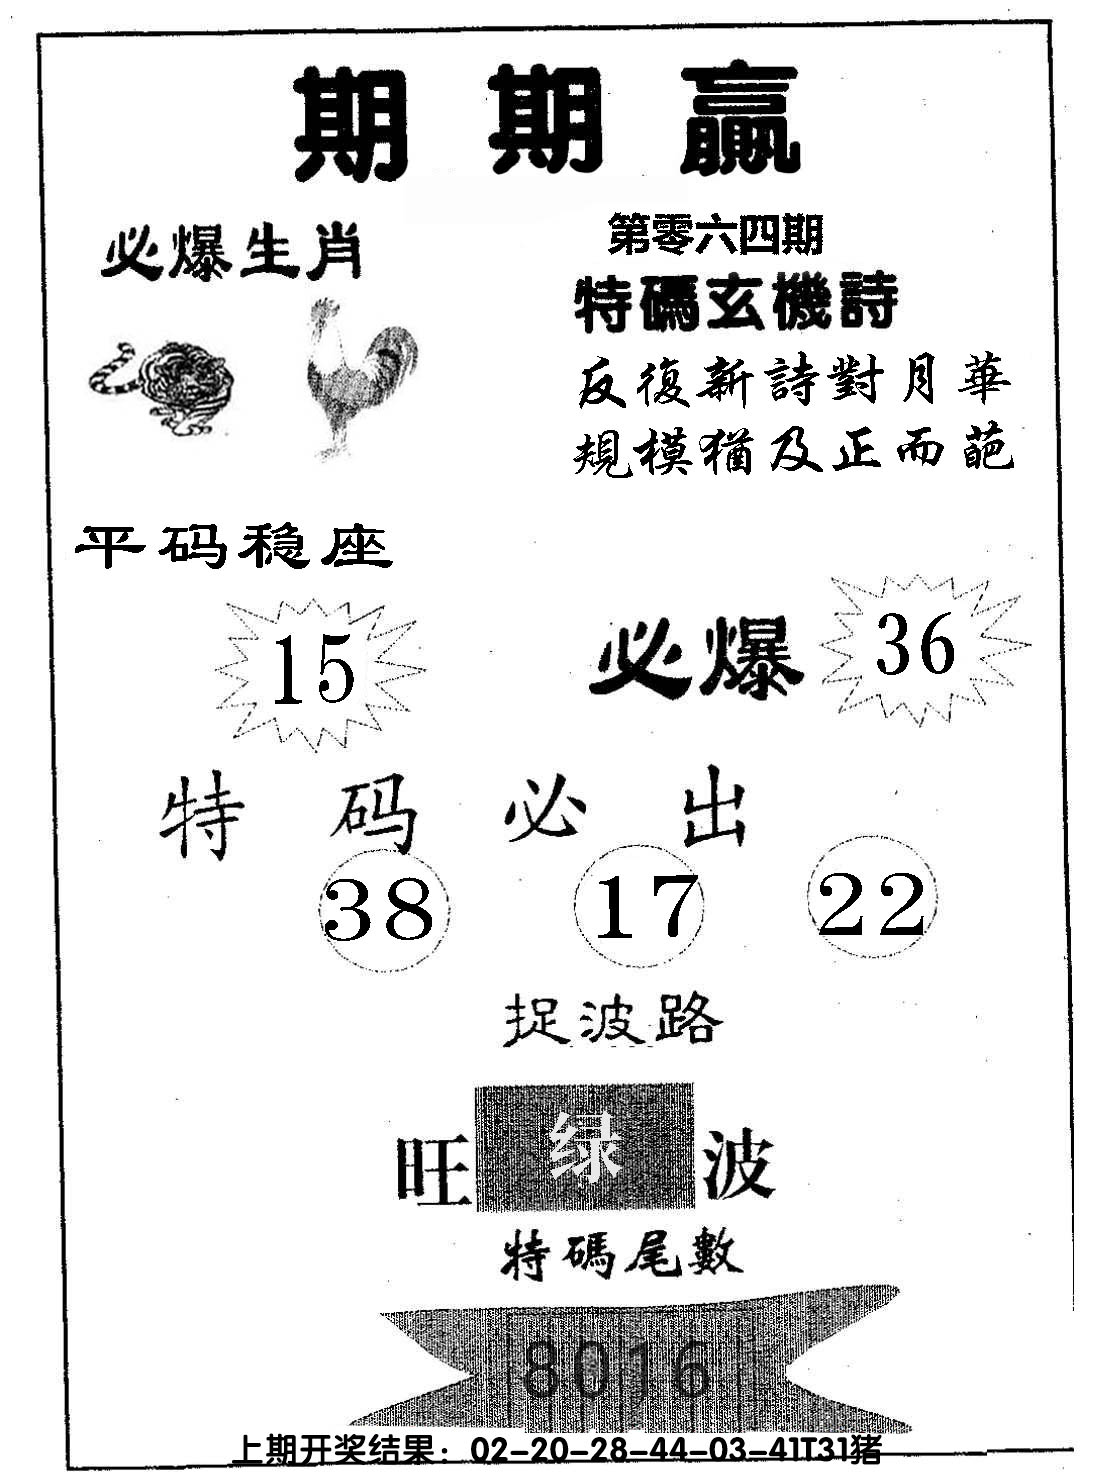 期期赢
必爆生肖
第零六四期
特碼玄機詩
反復新詩對月華
規模猶及正而葩
平码稳座
15
必爆 36
特码必出
38 17 22
捉波路
旺 绿 波
特碼尾數
8016
上期开奖结果：02-20-28-44-03-41T31猪